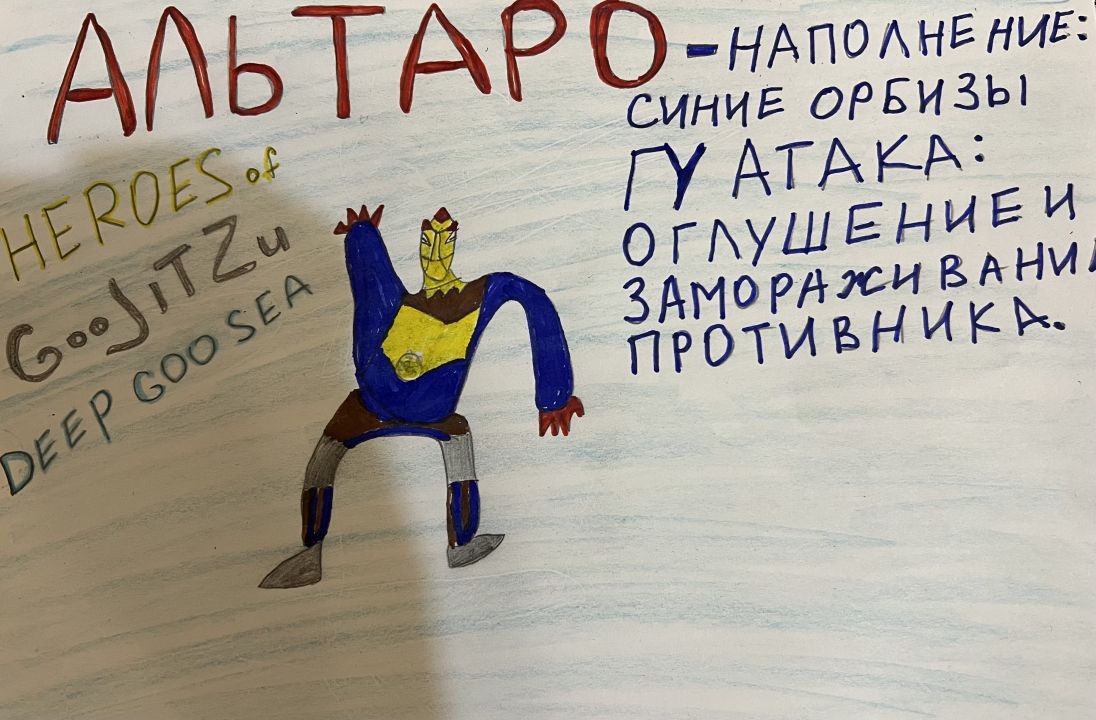 АЛЬТАРО - НАПОЛНЕНИЕ:
СИНИЕ ОРБИЗЫ
ГУ АТАКА:
ОГЛУШЕНИЕ И
ЗАМОРАЖИВАНИЯ
ПРОТИВНИКА.
HEROES of
GooJiTZu
DEEP GOO SEA